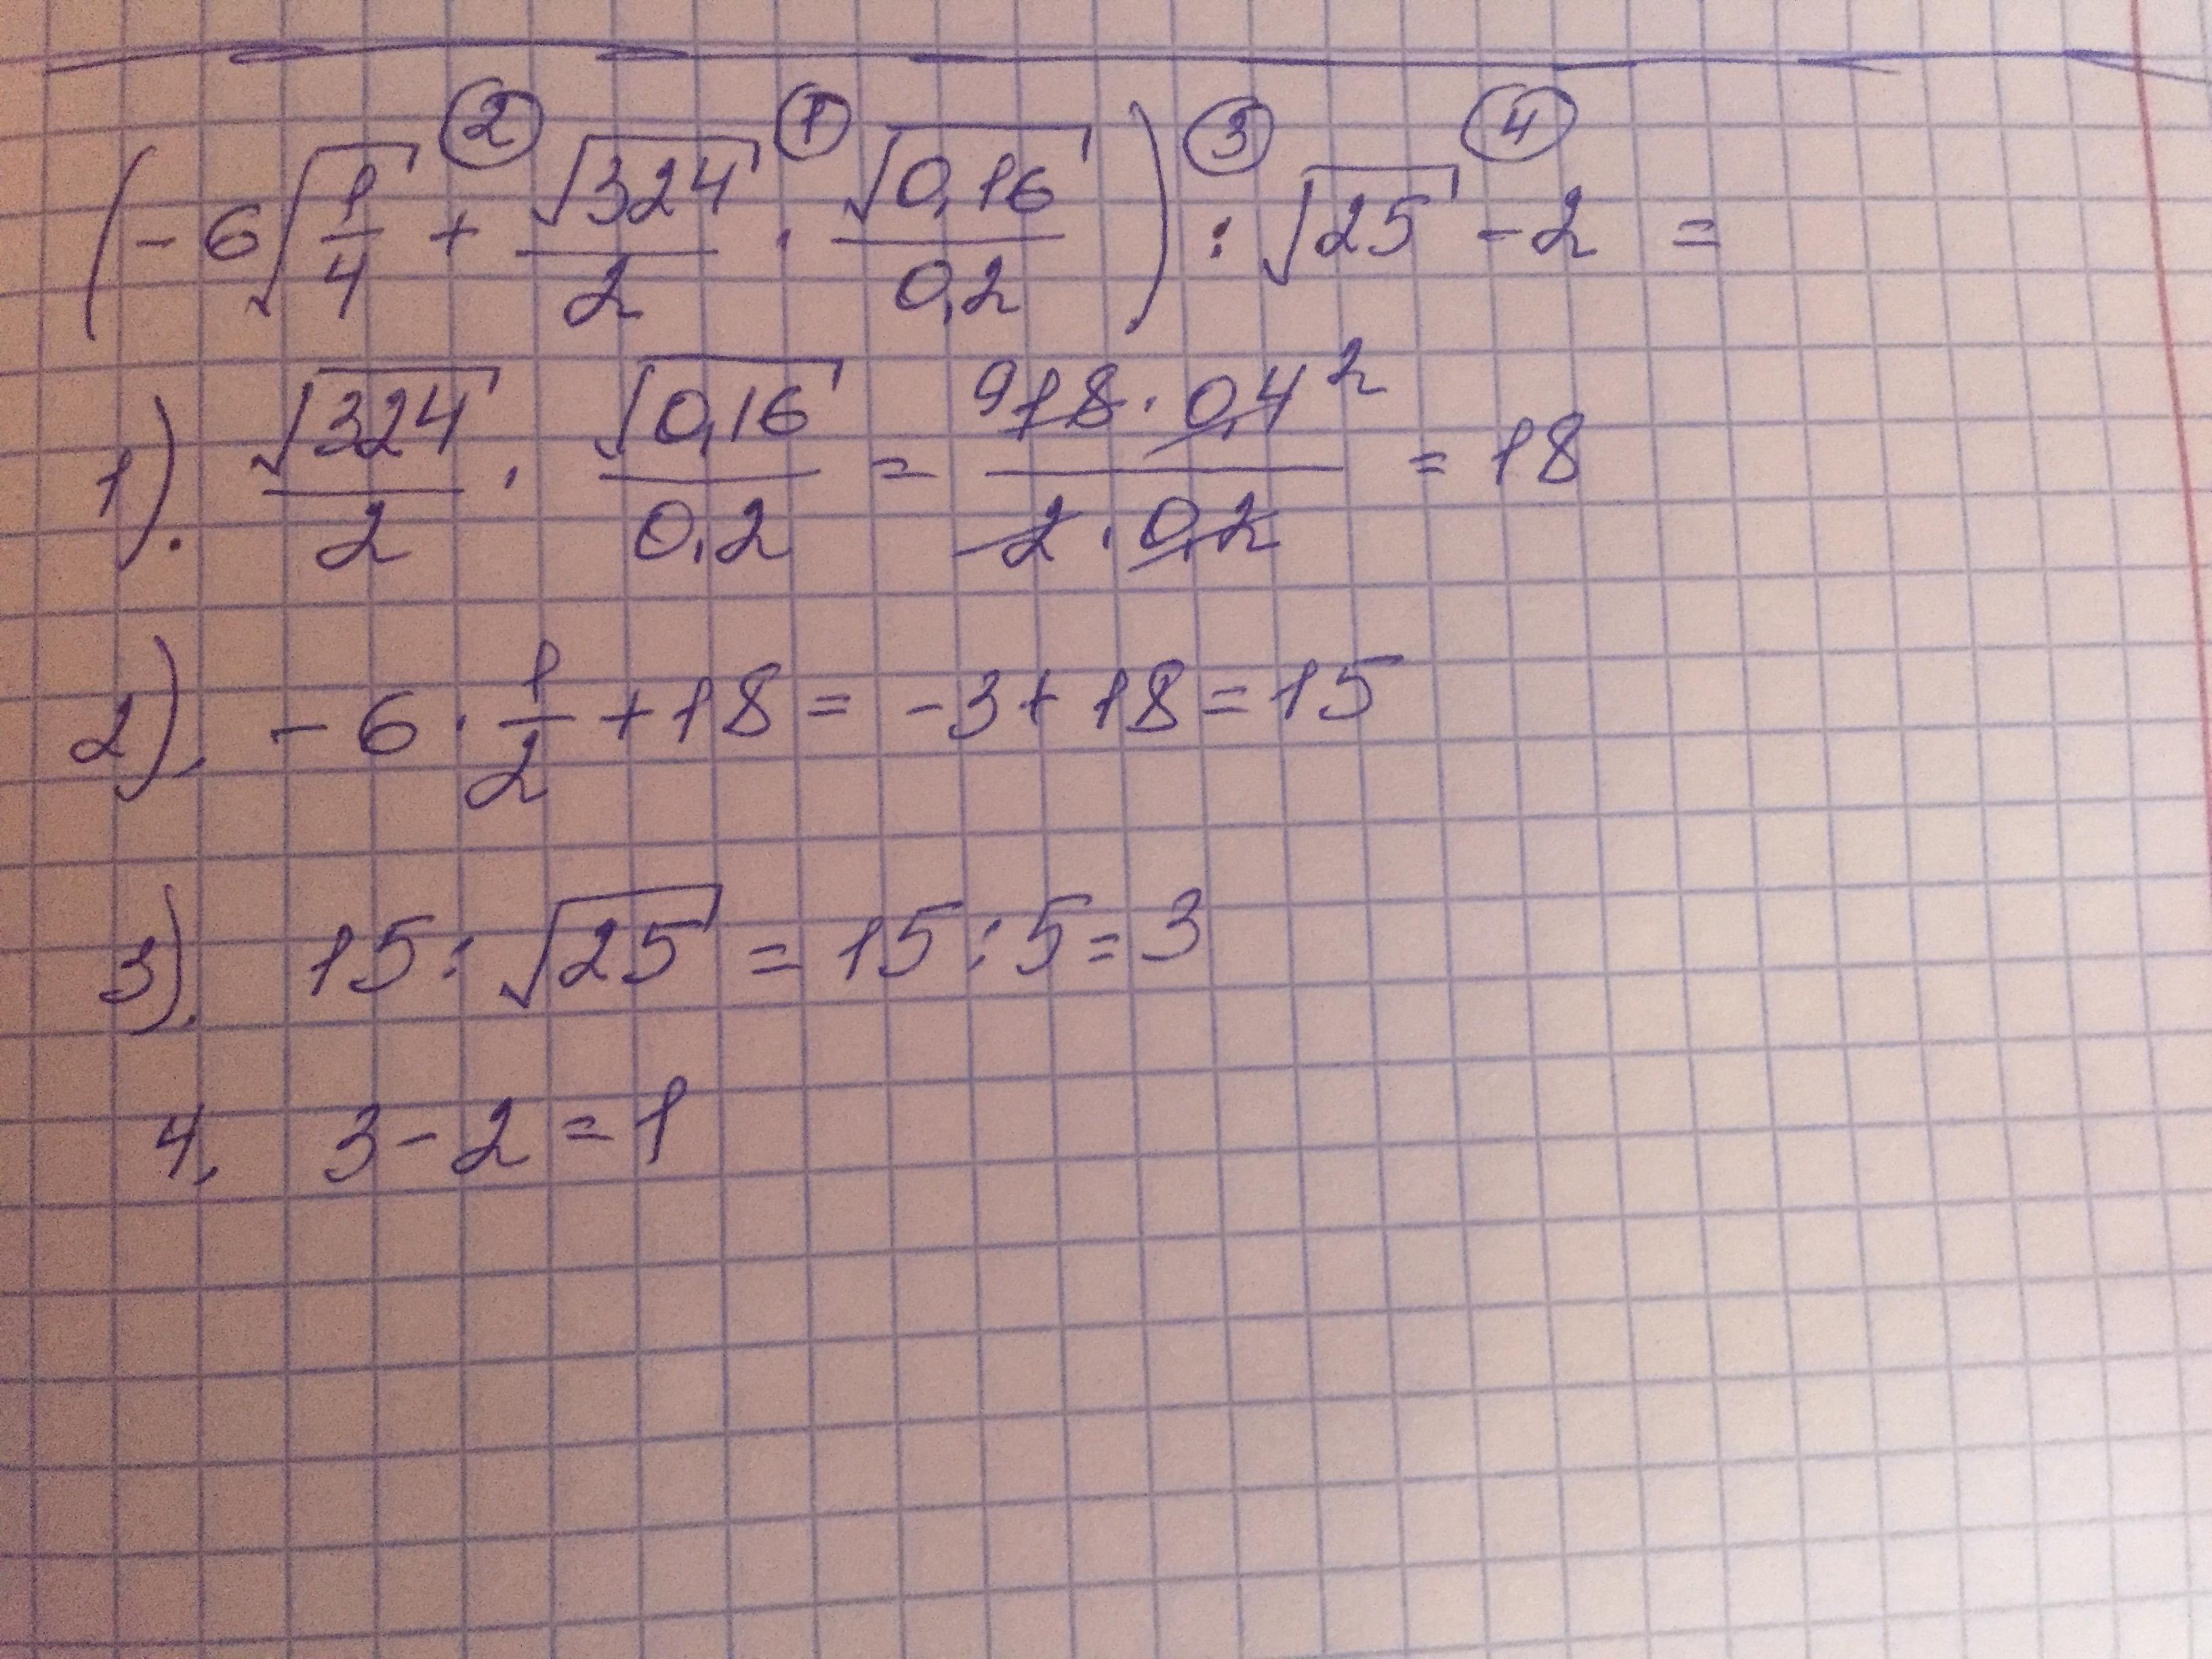 (-6√(1/4) ② + √324/2 ① · √0,16/0,2) ③ : √25 ④ - 2 =
1). √324/2 · √0,16/0,2 = 9 18 · 0,4 2 / 2 · 0,2 = 18
2). -6 · 1/2 + 18 = -3 + 18 = 15
3). 15 : √25 = 15 : 5 = 3
4. 3 - 2 = 1